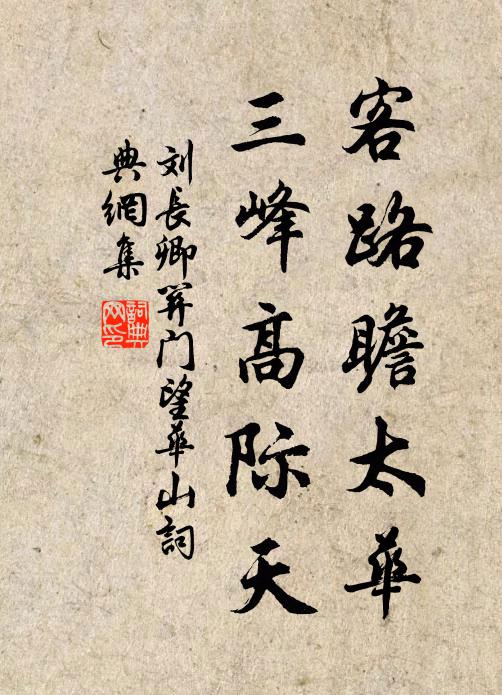 客路瞻太華
三峰高际天
刘長卿關门望華山詞
典網集
詞典
网印